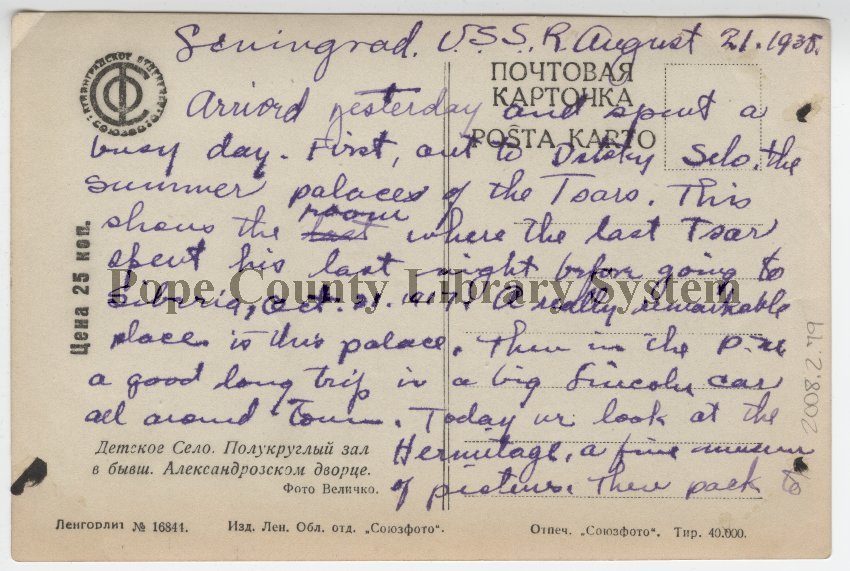 Leningrad. U.S.S.R. August 21. 1935.
ЛЕНИНГРАДСКОЕ ОТДЕЛЕНИЕ СОЮЗФОТО
СФ
ПОЧТОВАЯ
КАРТОЧКА
POŜTA KARTO
Arrived yesterday and spent a
busy day. First, out to Detsky Selo. the
summer palaces of the Tsars. This
shows the room where the last Tsar
spent his last night before going to
Siberia, Oct. 31. 1917. A really remarkable
places is this palace. Then in the P.M.
a good long trip in a big Lincoln car
all around Town. Today we look at the
Hermitage, a fine museum
of pictures. Then pack to
Цена 25 коп.
Pope County Library System
2008.2.79
Детское Село. Полукруглый зал
в бывш. Александрозском дворце.
Фото Величко.
Ленгорлит № 16841. Изд. Лен. Обл. отд. „Союзфото“. Отпеч. „Союзфото“. Тир. 40.000.